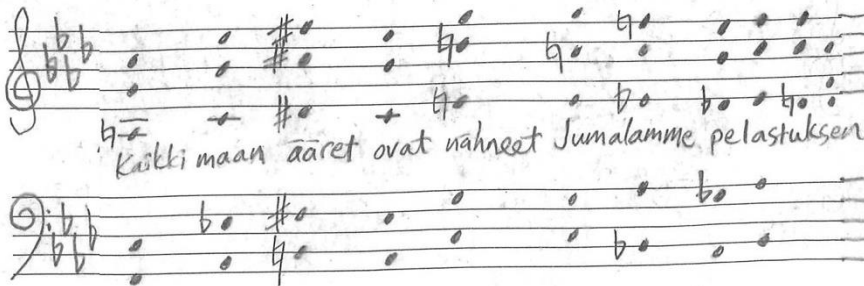 Kaikki maan ääret ovat nähneet Jumalamme pelastuksen